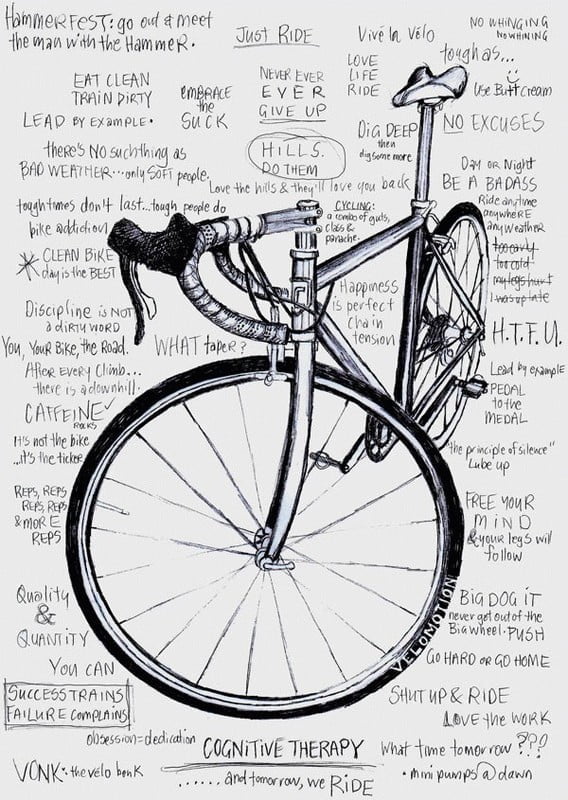 HAMMERFEST: go out & meet
the man with the Hammer.
JUST RIDE
Vivé la Vélo
NO WHINGING
NO WHINING
tough as...
Use Butt Cream
LOVE
LIFE
RIDE
EAT CLEAN
TRAIN DIRTY
EMBRACE
the
SUCK
NEVER EVER
EVER
GIVE UP
LEAD BY EXAMPLE.
DIG DEEP
then
dig some more
NO EXCUSES
there's NO such thing as
BAD WEATHER...only SOFT people.
HILLS.
DO THEM
Love the hills & they'll love you back
Day or Night
BE A BADASS
Ride anytime
anywhere
any weather
too early
too cold
my legs hurt
I was up late
tough times don't last...tough people do
bike addiction
CYCLING:
a combo of guts,
class &
panache.
CLEAN BIKE
day is the BEST
Happiness
is perfect
chain
tension
Discipline is NOT
a dirty WORD
H.T.F.U.
You, Your Bike, the Road.
WHAT taper?
After Every Climb...
there is a downhill.
Lead by example
PEDAL
to the
MEDAL
CAFFEINE
ROCKS
It's not the bike
...it's the ticker
"the principle of silence"
Lube up
REPS, REPS
REPS, REPS
& MORE
REPS
FREE YOUR
MIND
& your legs will
follow
Quality
&
QUANTITY
BIG DOG IT
never get out of the
Big wheel. PUSH
VELOMOTION
GO HARD or GO HOME
YOU CAN
SUCCESS TRAINS
FAILURE COMPLAINS
SHUT UP & RIDE
LOVE the WORK
obsession=dedication
COGNITIVE THERAPY
What time tomorrow???
VONK: the vélo bonk
......and tomorrow, we RIDE
• mini pumps @ dawn